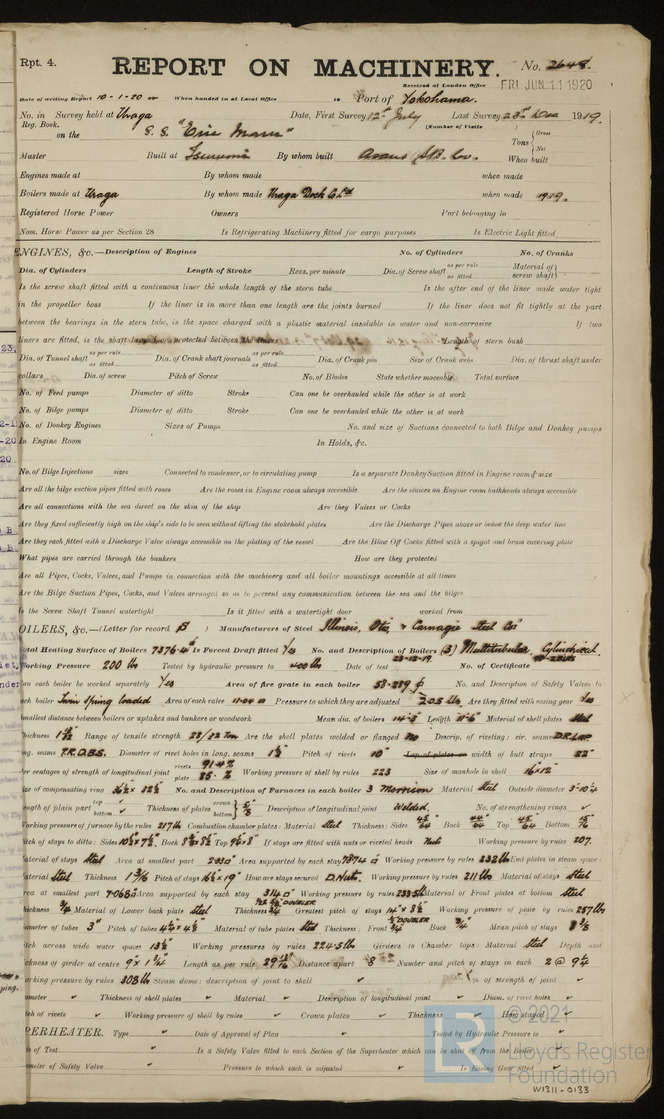 Rpt. 4.
REPORT ON MACHINERY. No. 2648.
Received at London Office FRI. JUN. 11 1920
Date of writing Report 10-1-20 When handed in at Local Office 19 Port of Yokohama.
No. in Survey held at Uraga Date, First Survey 12th July Last Survey 23rd Dec 1919.
Reg. Book. (Number of Visits
on the S.S. "Erie Maru" Tons { Gross Net
Master Built at Tsurumi By whom built Asano S.B. Co. When built
Engines made at By whom made when made
Boilers made at Uraga By whom made Uraga Dock Co Ltd when made 1919.
Registered Horse Power Owners Port belonging to
Nom. Horse Power as per Section 28 Is Refrigerating Machinery fitted for cargo purposes Is Electric Light fitted
ENGINES, &c.—Description of Engines No. of Cylinders No. of Cranks
Dia. of Cylinders Length of Stroke Revs. per minute Dia. of Screw shaft as per rule as fitted Material of screw shaft
Is the screw shaft fitted with a continuous liner the whole length of the stern tube Is the after end of the liner made water tight
in the propeller boss If the liner is in more than one length are the joints burned If the liner does not fit tightly at the part
between the bearings in the stern tube, is the space charged with a plastic material insoluble in water and non-corrosive If two
liners are fitted, is the shaft lapped or protected between the liners Length of stern bush
Dia. of Tunnel shaft as per rule as fitted Dia. of Crank shaft journals as per rule as fitted Dia. of Crank pin Size of Crank webs Dia. of thrust shaft under
collars Dia. of screw Pitch of Screw No. of Blades State whether moveable Total surface
No. of Feed pumps Diameter of ditto Stroke Can one be overhauled while the other is at work
No. of Bilge pumps Diameter of ditto Stroke Can one be overhauled while the other is at work
No. of Donkey Engines Sizes of Pumps No. and size of Suctions connected to both Bilge and Donkey pumps
In Engine Room In Holds, &c.
No. of Bilge Injections sizes Connected to condenser, or to circulating pump Is a separate Donkey Suction fitted in Engine room & size
Are all the bilge suction pipes fitted with roses Are the roses in Engine room always accessible Are the sluices on Engine room bulkheads always accessible
Are all connections with the sea direct on the skin of the ship Are they Valves or Cocks
Are they fixed sufficiently high on the ship's side to be seen without lifting the stokehold plates Are the Discharge Pipes above or below the deep water line
Are they each fitted with a Discharge Valve always accessible on the plating of the vessel Are the Blow Off Cocks fitted with a spigot and brass covering plate
What pipes are carried through the bunkers How are they protected
Are all Pipes, Cocks, Valves, and Pumps in connection with the machinery and all boiler mountings accessible at all times
Are the Bilge Suction Pipes, Cocks, and Valves arranged so as to prevent any communication between the sea and the bilges
Is the Screw Shaft Tunnel watertight Is it fitted with a watertight door worked from
OILERS, &c.—(Letter for record B) Manufacturers of Steel Illinois, Otis, & Carnegie Steel Cos
Total Heating Surface of Boilers 7376.4 Is Forced Draft fitted Yes No. and Description of Boilers (3) Multitubular Cylindrical.
Working Pressure 200 lbs Tested by hydraulic pressure to 400 lbs Date of test 23-12-19 No. of Certificate
Can each boiler be worked separately Yes Area of fire grate in each boiler 58.289 No. and Description of Safety Valves to
each boiler Twin Spring loaded Area of each valve 11.04 Pressure to which they are adjusted 205 lbs Are they fitted with easing gear Yes
Smallest distance between boilers or uptakes and bunkers or woodwork Mean dia. of boilers 14'-3" Length 11'-6" Material of shell plates Steel
Thickness Range of tensile strength 28/32 Ton Are the shell plates welded or flanged No Descrip. of riveting: cir. seams D.R. LAP
long. seams T.R.D.B.S. Diameter of rivet holes in long. seams Pitch of rivets 10" Lap of plates or width of butt straps 22"
Per centages of strength of longitudinal joint rivets plate 85. % Working pressure of shell by rules 223 Size of manhole in shell 16"x12"
Size of compensating ring No. and Description of Furnaces in each boiler 3 Morrison Material Steel Outside diameter
Length of plain part top bottom Thickness of plates crown bottom 5/8 Description of longitudinal joint Welded. No. of strengthening rings
Working pressure of furnace by the rules 217 lb Combustion chamber plates: Material Steel Thickness: Sides 45/64 Back 44/64 Top 45/64 Bottom
Pitch of stays to ditto: Sides Back Top If stays are fitted with nuts or riveted heads Nuts Working pressure by rules 207.
Material of stays Steel Area at smallest part Area supported by each stay Working pressure by rules 232 lb End plates in steam space:
Material Steel Thickness 1 3/16 Pitch of stays 16½ x 19" How are stays secured D. Nuts. Working pressure by rules 211 lbs Material of stays Steel
Area at smallest part Area supported by each stay 314 Working pressure by rules Material of Front plates at bottom Steel
Thickness ¾ Material of Lower back plate Steel Thickness DOUBLER Greatest pitch of stays Working pressure of plate by rules 257 lbs
Diameter of tubes 3" Pitch of tubes 4¼ x 4½ Material of tube plates Steel Thickness: Front ¾ DOUBLER Back ¾" Mean pitch of stays
Pitch across wide water spaces 13½" Working pressures by rules 224.5 lb Girders to Chamber tops: Material Steel Depth and
thickness of girder at centre 9" x 1¾" Length as per rule Distance apart 8" Number and pitch of stays in each 2 @ 9¼
Working pressure by rules 303 lb Steam dome: description of joint to shell % of strength of joint
Diameter Thickness of shell plates Material Description of longitudinal joint Diam. of rivet holes
Pitch of rivets Working pressure of shell by rules Crown plates Thickness How stayed
PERHEATER. Type Date of Approval of Plan Tested by Hydraulic Pressure to
Date of Test Is a Safety Valve fitted to each Section of the Superheater which can be shut off from the Boiler
Diameter of Safety Valve Pressure to which each is adjusted Is Easing Gear fitted
© 2021
Lloyd's Register
Foundation
W1311-0133